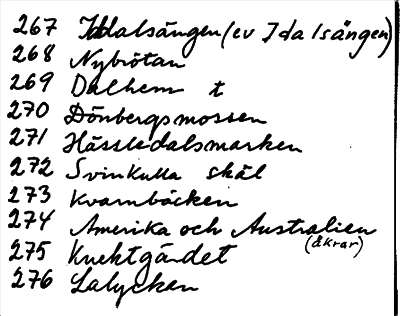 267 Iddalsängen (ev Idalsängen)
268 Nybrötan
269 Dalhem t
270 Dönbergsmossen
271 Hässledalsmarken
272 Svinkulla skäl
273 Kvarnbäcken
274 Amerika och Australien
(åkrar)
275 Knektgärdet
276 Lalycken